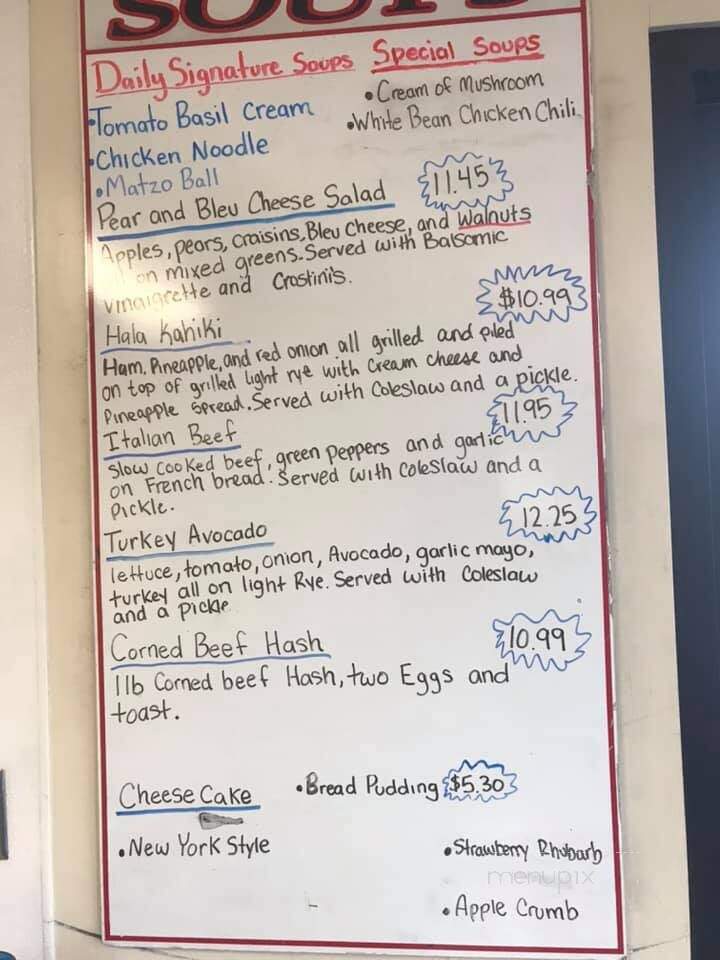 SOUPS
Daily Signature Soups Special Soups
•Tomato Basil Cream
•Chicken Noodle
•Matzo Ball
•Cream of Mushroom
•White Bean Chicken Chili
Pear and Bleu Cheese Salad 11.45
Apples, pears, craisins, Bleu Cheese, and Walnuts
on mixed greens. Served with Balsamic
vinaigrette and Crostini's.
$10.99
Hala Kahiki
Ham, Pineapple, and red onion all grilled and piled
on top of grilled light rye with Cream cheese and
Pineapple Spread. Served with Coleslaw and a pickle.
Italian Beef 11.95
Slow cooked beef, green peppers and garlic
on French bread. Served with Coleslaw and a
Pickle.
Turkey Avocado 12.25
lettuce, tomato, onion, Avocado, garlic mayo,
turkey all on light Rye. Served with Coleslaw
and a pickle
Corned Beef Hash 10.99
1lb Corned beef Hash, two Eggs and
toast.
Cheese Cake
•Bread Pudding $5.30
•New York Style
•Strawberry Rhubarb
menupix
•Apple Crumb